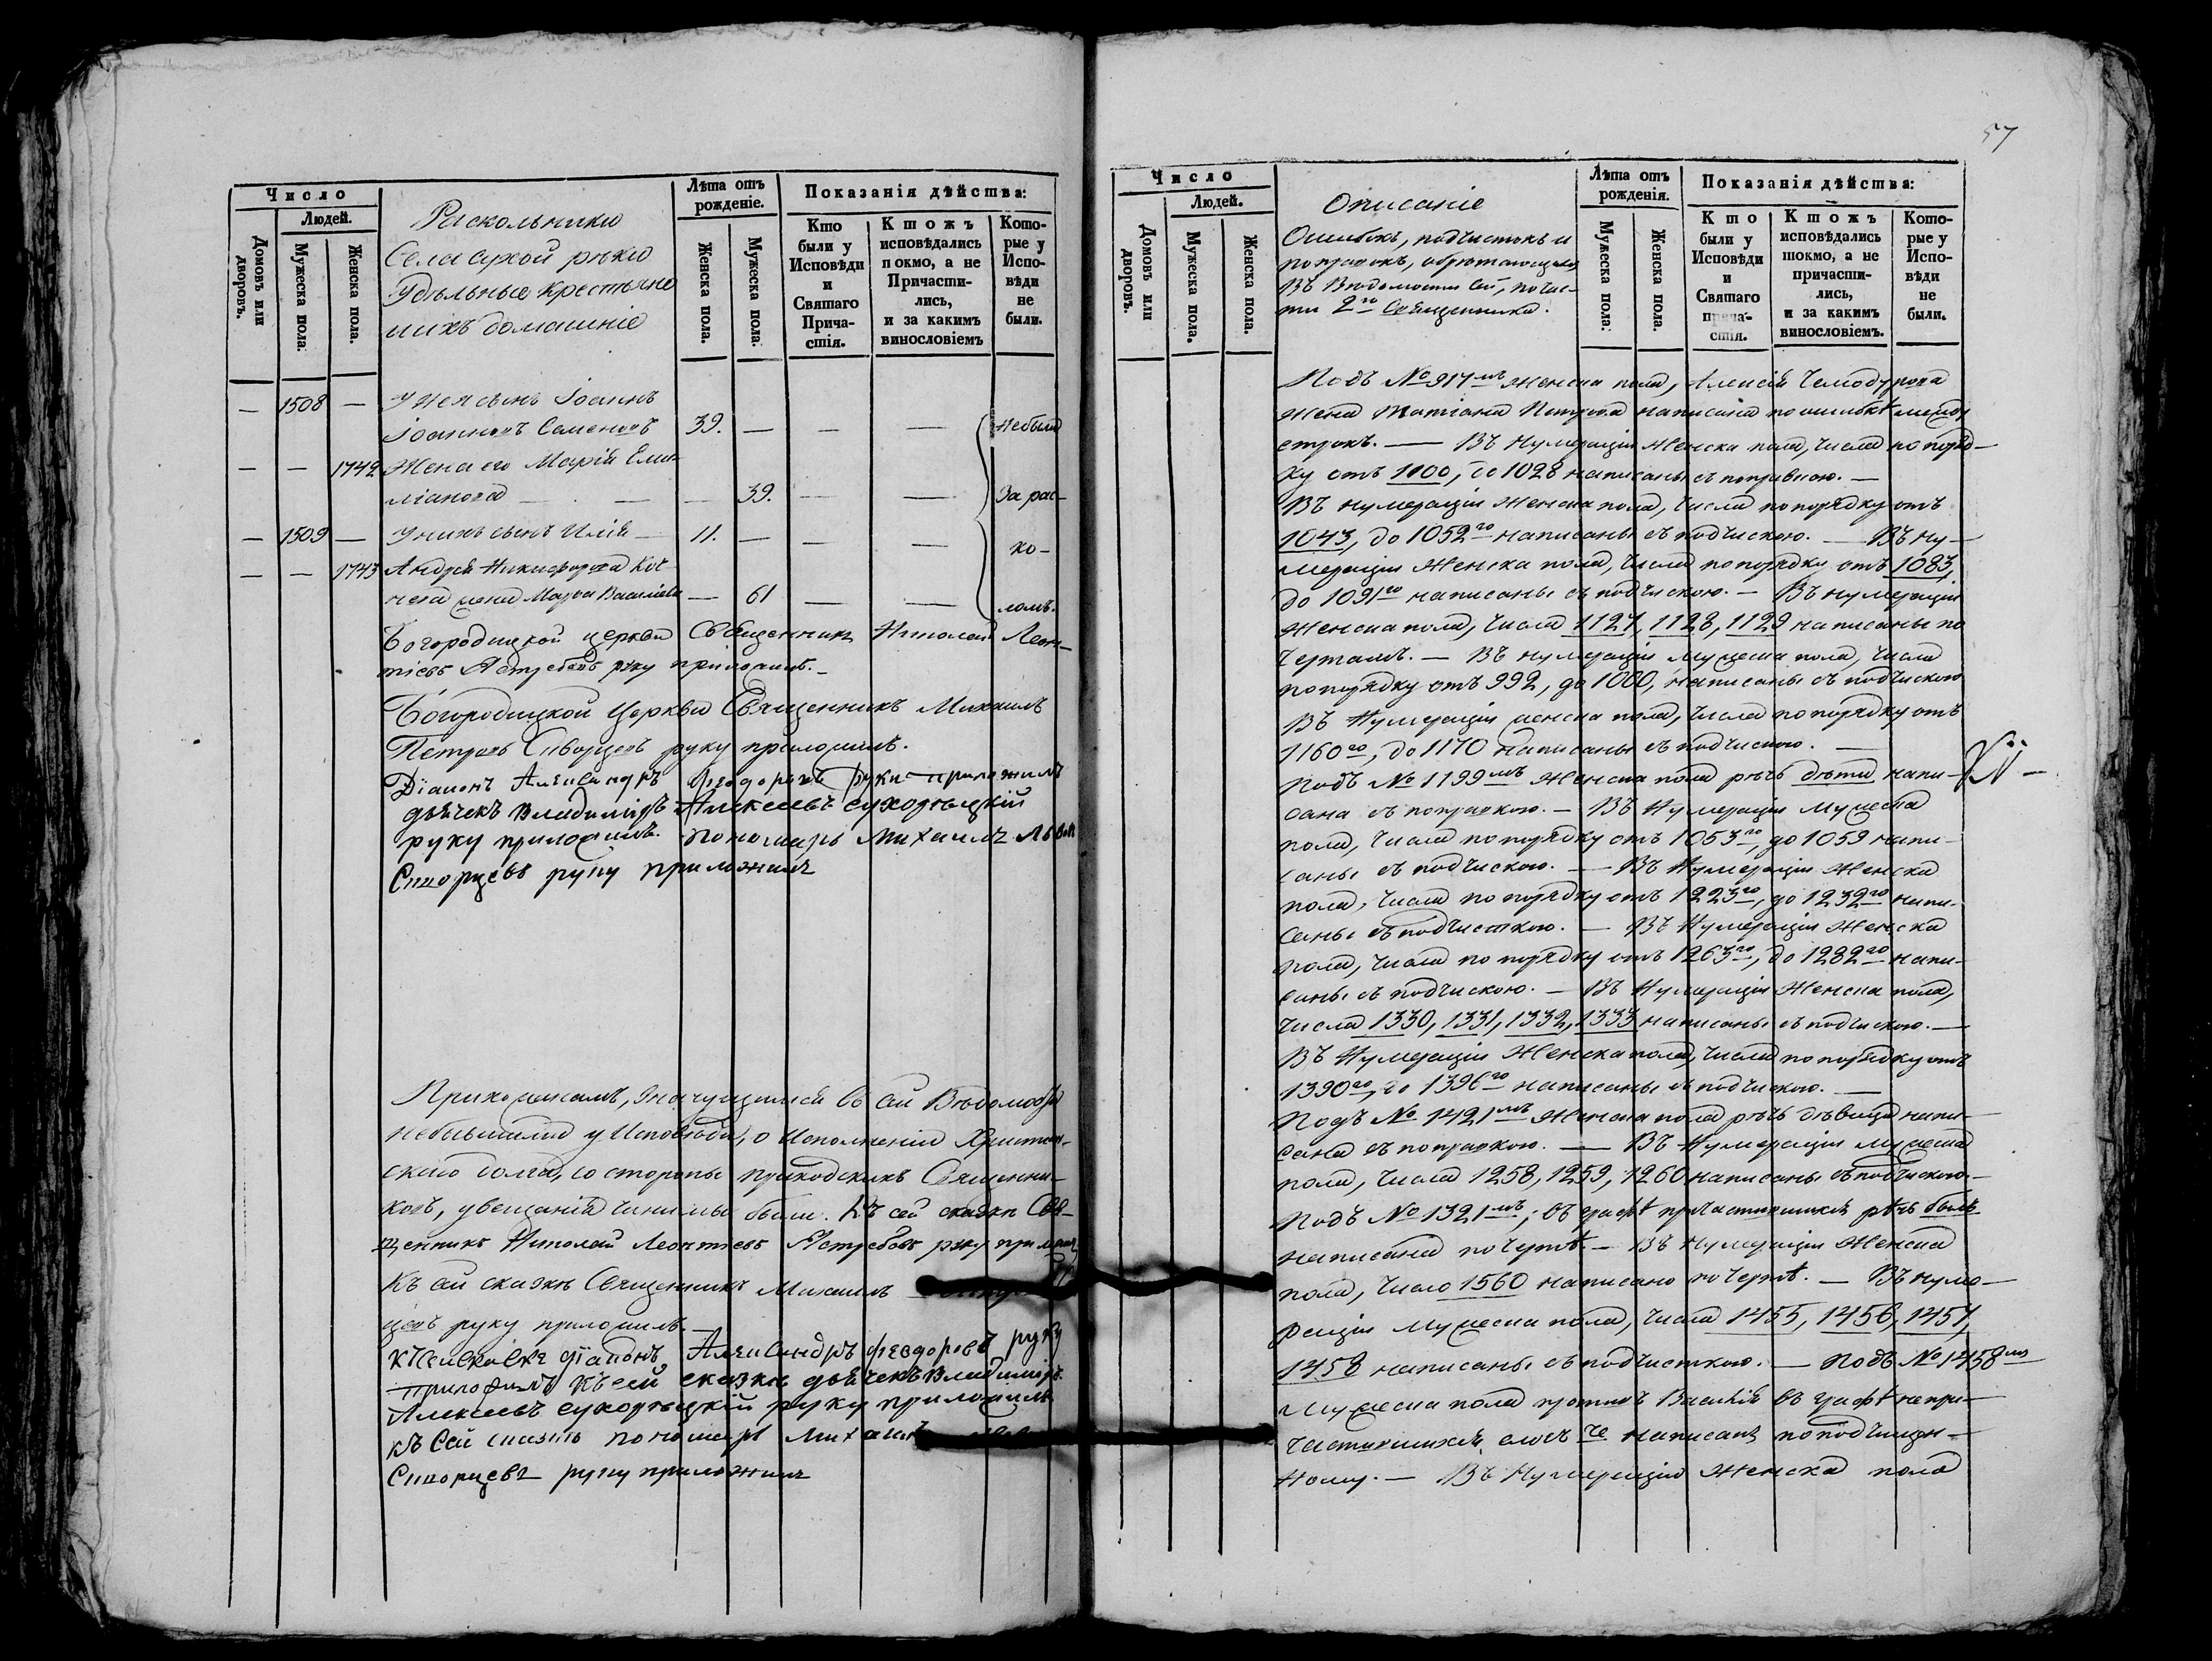 57
Число
Людей.
Домовъ или дворовъ.
Мужеска пола.
Женска пола.
Раскольники
Села сухой рѣки
Удѣльные крестьяне
и ихъ домашніе
Лѣта отъ рожденіе.
Женска пола.
Мужеска пола.
Показанія дѣйства:
Кто были у Исповѣди и Святаго Причастія.
Ктожъ исповѣдались покмо, а не Причастились, и за какимъ винословіемъ
Которые у Исповѣди не были.
— 1508 — У нея сынъ Іоаннъ
Іоанновъ Семеновъ 39. — — — небыли
— — 1742 Жена его Марія Еми-
ліанова — — — 39. — — За рас-
— 1509 — У нихъ сынъ Илія — 11. — — — ко-
— — 1743 Андрея Никифорова Коч-
нева жена Марѳа Васильева — 61 — — ломъ.
Богородицкой церкви Священникъ Николай Леон-
тіевъ Ястребовъ руку приложилъ. —
Богородицкой Церкви Священникъ Михаилъ
Петровъ Скворцевъ руку приложилъ.
Діаконъ Александръ Ѳеодоровъ руку приложилъ
дьячекъ Владиміръ Алексеевъ сухорѣцкій
руку приложилъ. пономарь Михаилъ Львовъ
Скворцевъ руку приложилъ
Прихожанамъ, значущимся въ сей Вѣдомости
небывшими у Исповѣди, о Исполненіи Христіан-
скаго долга, со стороны приходскихъ Священни-
ковъ, увещанія чинимы были. Къ сей сказки Свя-
щенникъ Николай Леонтіевъ Ястребовъ руку приложилъ
Къ сей сказкѣ Священникъ Михаилъ
цевъ руку приложилъ.
Къ сей сказкѣ діаконъ Александръ Ѳеодоровъ руку
приложилъ Къ сей сказкѣ дьячекъ Владиміръ
Алексеевъ сухорѣцкій руку приложилъ
къ сей сказкѣ пономарь Михаилъ
Скворцевъ руку приложилъ
Число
Людей.
Домовъ или дворовъ.
Мужеска пола.
Женска пола.
Описаніе
Ошибокъ, подчистокъ и
поправокъ, обрѣтающихся
въ Вѣдомости сей, по час-
ти 2го Священника.
Лѣта отъ рожденія.
Мужеска пола.
Женска пола.
Показанія дѣйства:
Кто были у Исповѣди и Святаго Причастія.
Ктожъ исповѣдались шокмо, а не причастились, и за какимъ винословіемъ.
Которые у Исповѣди не были.
Подъ № 917мъ Женска пола, Алексія Чемодурова
жена Татіана Петрова написана по ошибкѣ между
строкъ. — Въ Нумераціи Женска пола, числа по поряд-
ку отъ 1100, до 1028 написаны съ поправкою. —
Въ нумераціи Женска пола, числа по порядку отъ
1043, до 1052го написаны съ подчискою. — Въ ну-
мераціи Женска пола, числа по порядку отъ 1083,
до 1091го написаны съ подчискою. — Въ нумераціи
Женска пола, числа 1127, 1128, 1129 написаны по
чертамъ. — Въ нумераціи мужеска пола, числа
по порядку отъ 992, до 1000, написаны съ подчискою
Въ Нумераціи женска пола, числа по порядку отъ
1160го, до 1170 написаны съ подчискою. —
Подъ № 1199мъ Женска пола рѣчь дѣти напи-
сана съ поправкою. — Въ Нумераціи Мужеска
пола, числа по порядку отъ 1053го, до 1059 напи-
саны съ подчискою. — Въ Нумераціи Женска
пола, числа по порядку отъ 1223го, до 1232го напи-
саны съ подчисткою. — Въ Нумераціи Женска
пола, числа по порядку отъ 1263го, до 1282го напи-
саны съ подчискою. — Въ Нумераціи Женска пола,
числа 1330, 1331, 1332, 1333 написаны съ подчискою. —
Въ Нумераціи Женска пола, числа по порядку отъ
1390го, до 1396го написаны съ подчискою. —
Подъ № 1421мъ Женска пола рѣчь дѣвица напи-
сана съ поправкою. — Въ Нумераціи мужеска
пола, числа 1258, 1259, 1260 написаны съ подчискою. —
Подъ № 1321мъ, въ графѣ причастившихся рѣчь былъ
написана по чертѣ. — Въ Нумераціи Женска
пола, число 1560 написано по чертѣ. — Въ нуме-
раціи Мужеска пола, числа 1455, 1456, 1457,
1458 написаны съ подчисткою. — Подъ № 1458мъ
Мужеска пола противъ Василія въ графѣ непри-
частившихся, слогъ че написанъ по подчищен-
ному. — Въ Нумераціи Женска пола